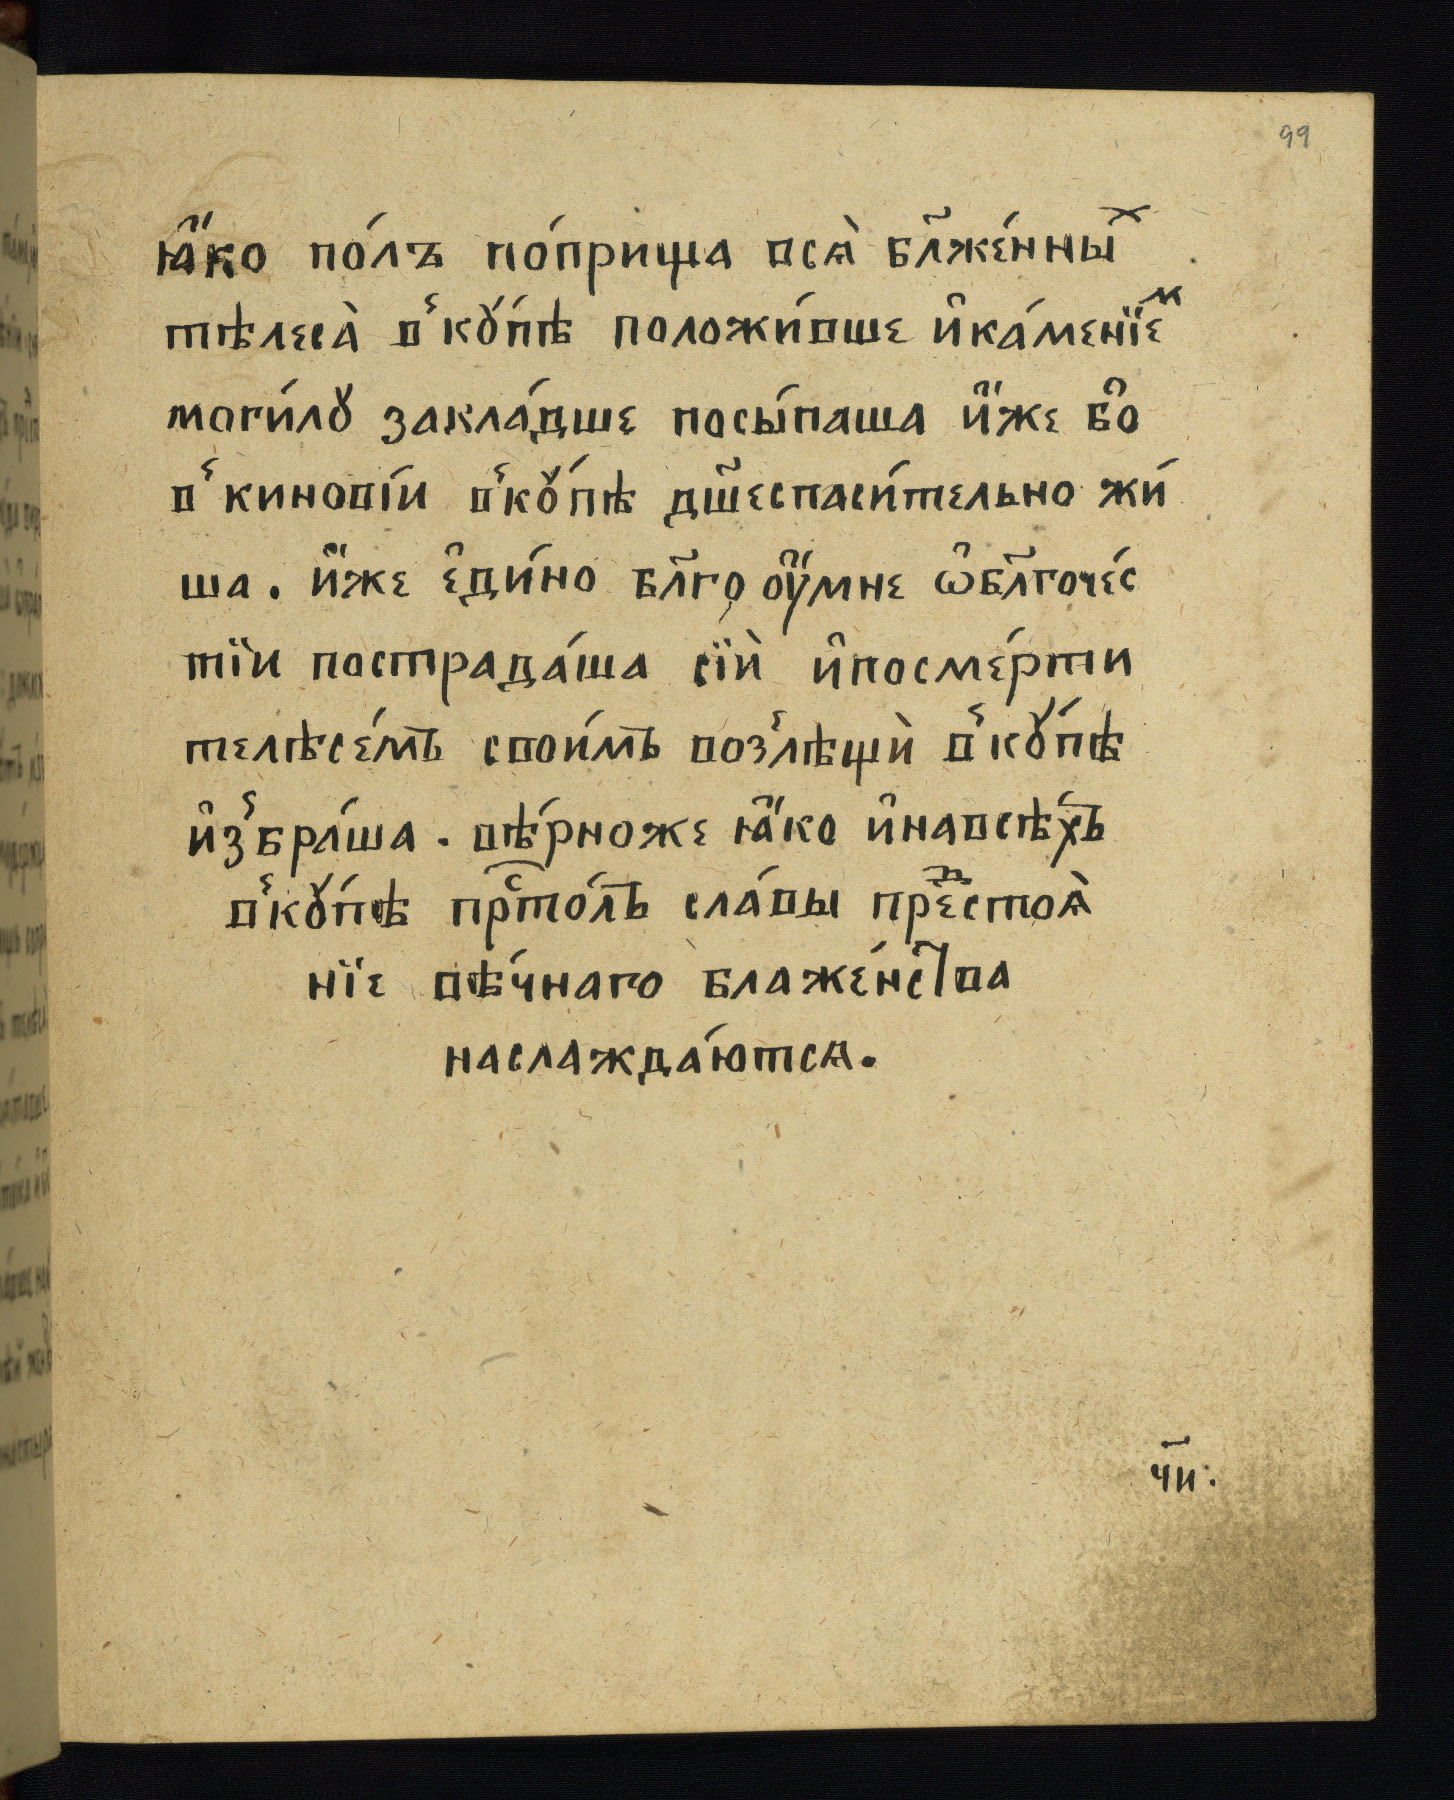 99
ꙗ҆́ко по́лъ по́прища всѧ̀ бл҃же́нныⷯ
тѣлеса̀ в᾽кꙋ́пѣ положи́вше и҆ка́менїеⷨ
моги́лꙋ закла́дше посы́паша и҆́же бо҆
в᾽ кинові́и в᾽кꙋ́пѣ дш҃еспаси́тельно жи́
ша. и҆́же є҆ди́но бл҃го оу҆́мне ѡ҆бл҃гоче́с
тїи пострада́ша сїѝ и҆посме́рти
телѣсе́мъ свои́мъ воз᾽лѣщѝ в᾽кꙋ́пѣ
и҆з᾽бра́ша. вѣ́рноже ꙗ҆́ко и҆навсѣ́хъ
в᾽кꙋ́пѣ прⷭ҇то́лъ сла́вы преⷣстоѧ̀
нїе вѣ́чнаго блаже́нст҃ва
наслажда́ютсѧ.
чи҃.